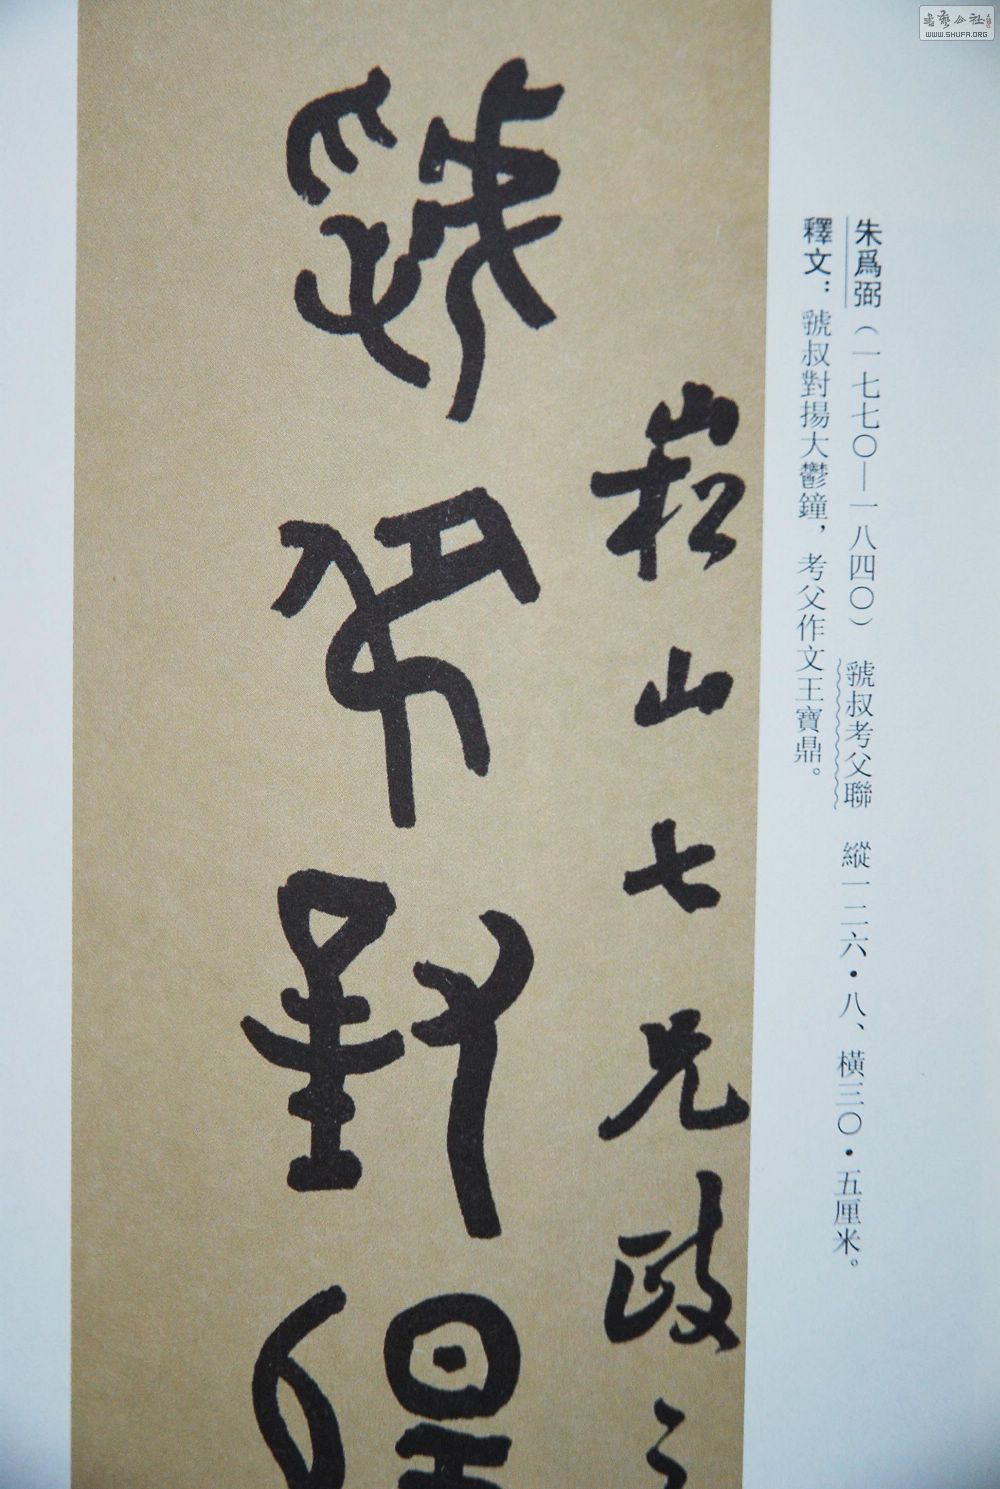 朱爲弼（一七七〇—一八四〇）　虢叔考父聯　縱一二六·八、橫三〇·五厘米。
釋文：虢叔對揚大鬱鐘，考父作文王寶鼎。
崧山七兄政之
虢叔對揚
書藝公社
WWW.SHUFA.ORG